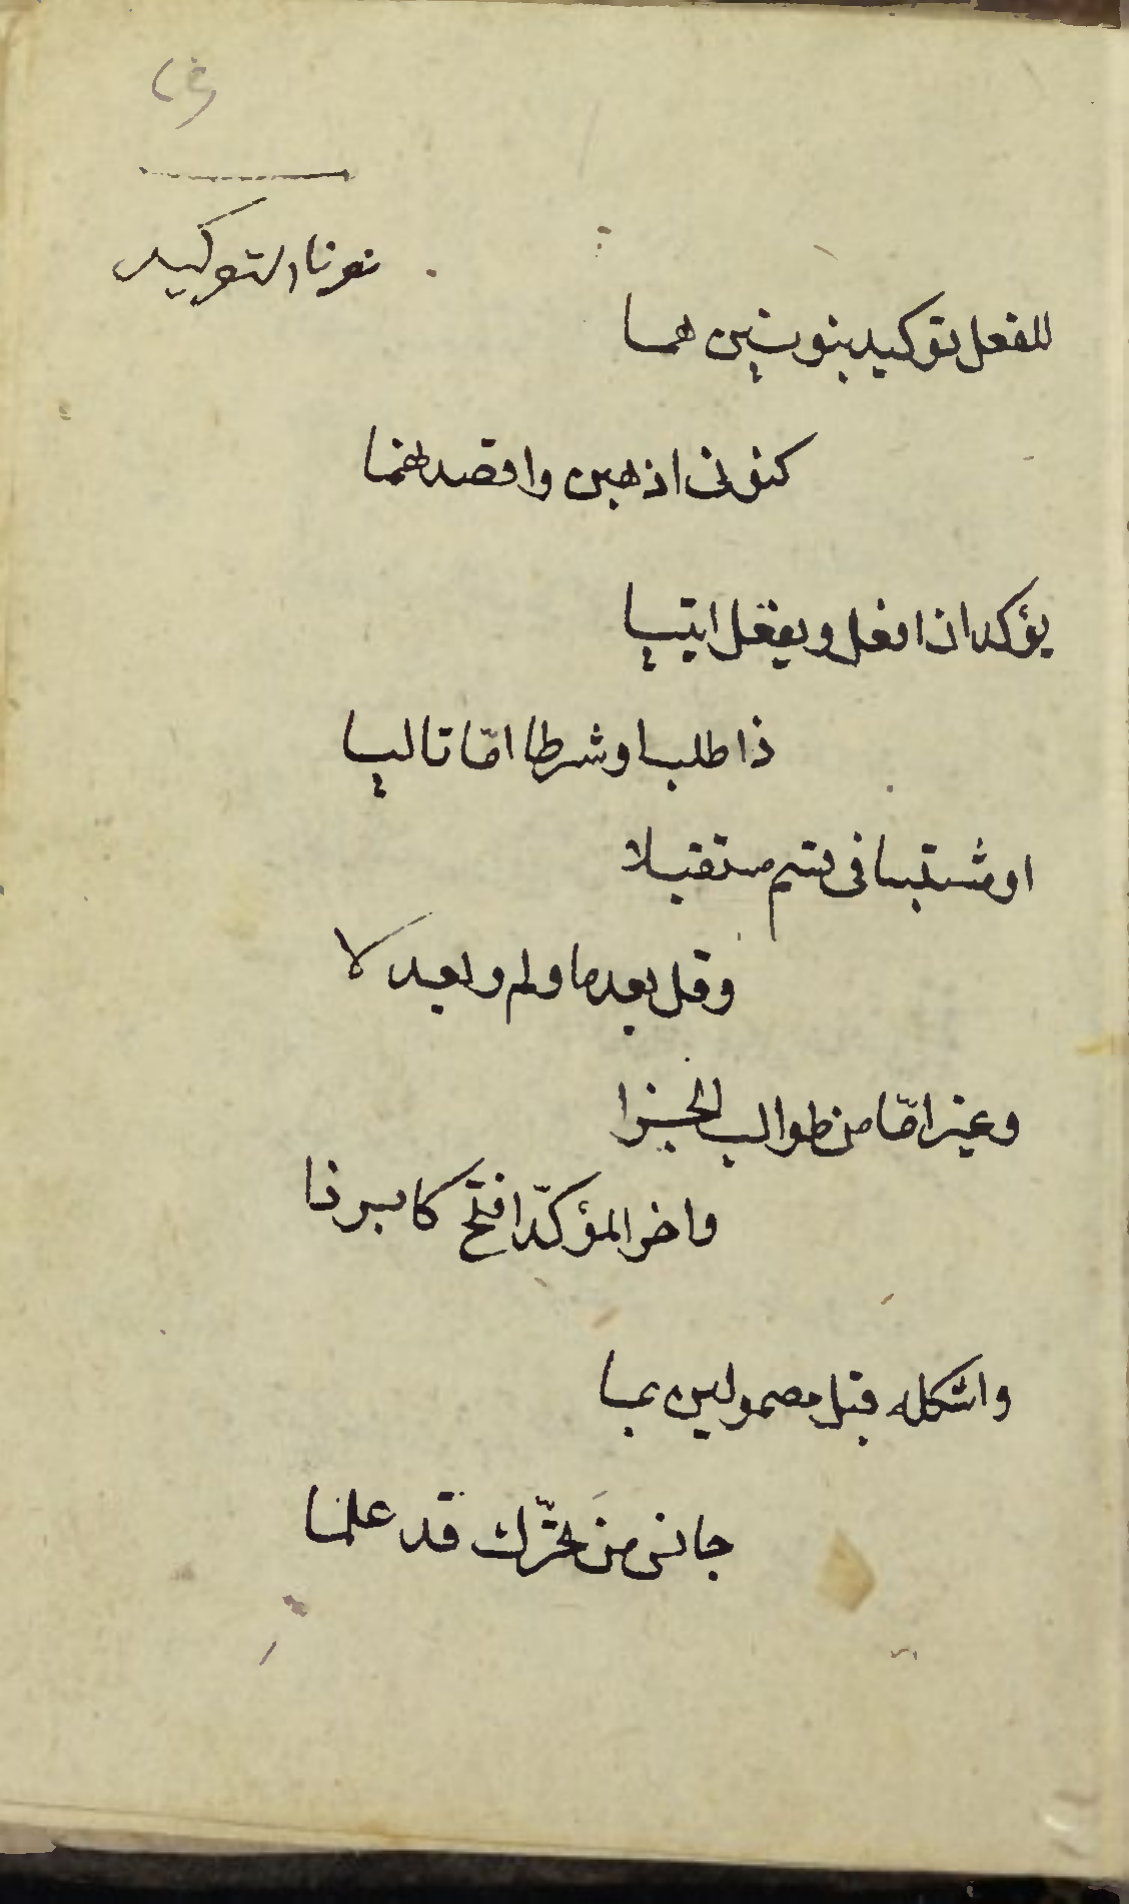 نونا التوكيد
للفعل توكيد بنونين هما
كنونى اذهبن واقصدنهما
يؤكدان افعل ويفعل اتيا
ذا طلب او شرطا امّا تاليا
او مثبتا فى قسم مستقبلا
وقل بعد ما ولم وبعد لا
وغير امّا من طوالب الجزا
واخر المؤكّد افتح كابرزا
واشكله قبل مضمر لين بما
جانس من تحرّك قد علما